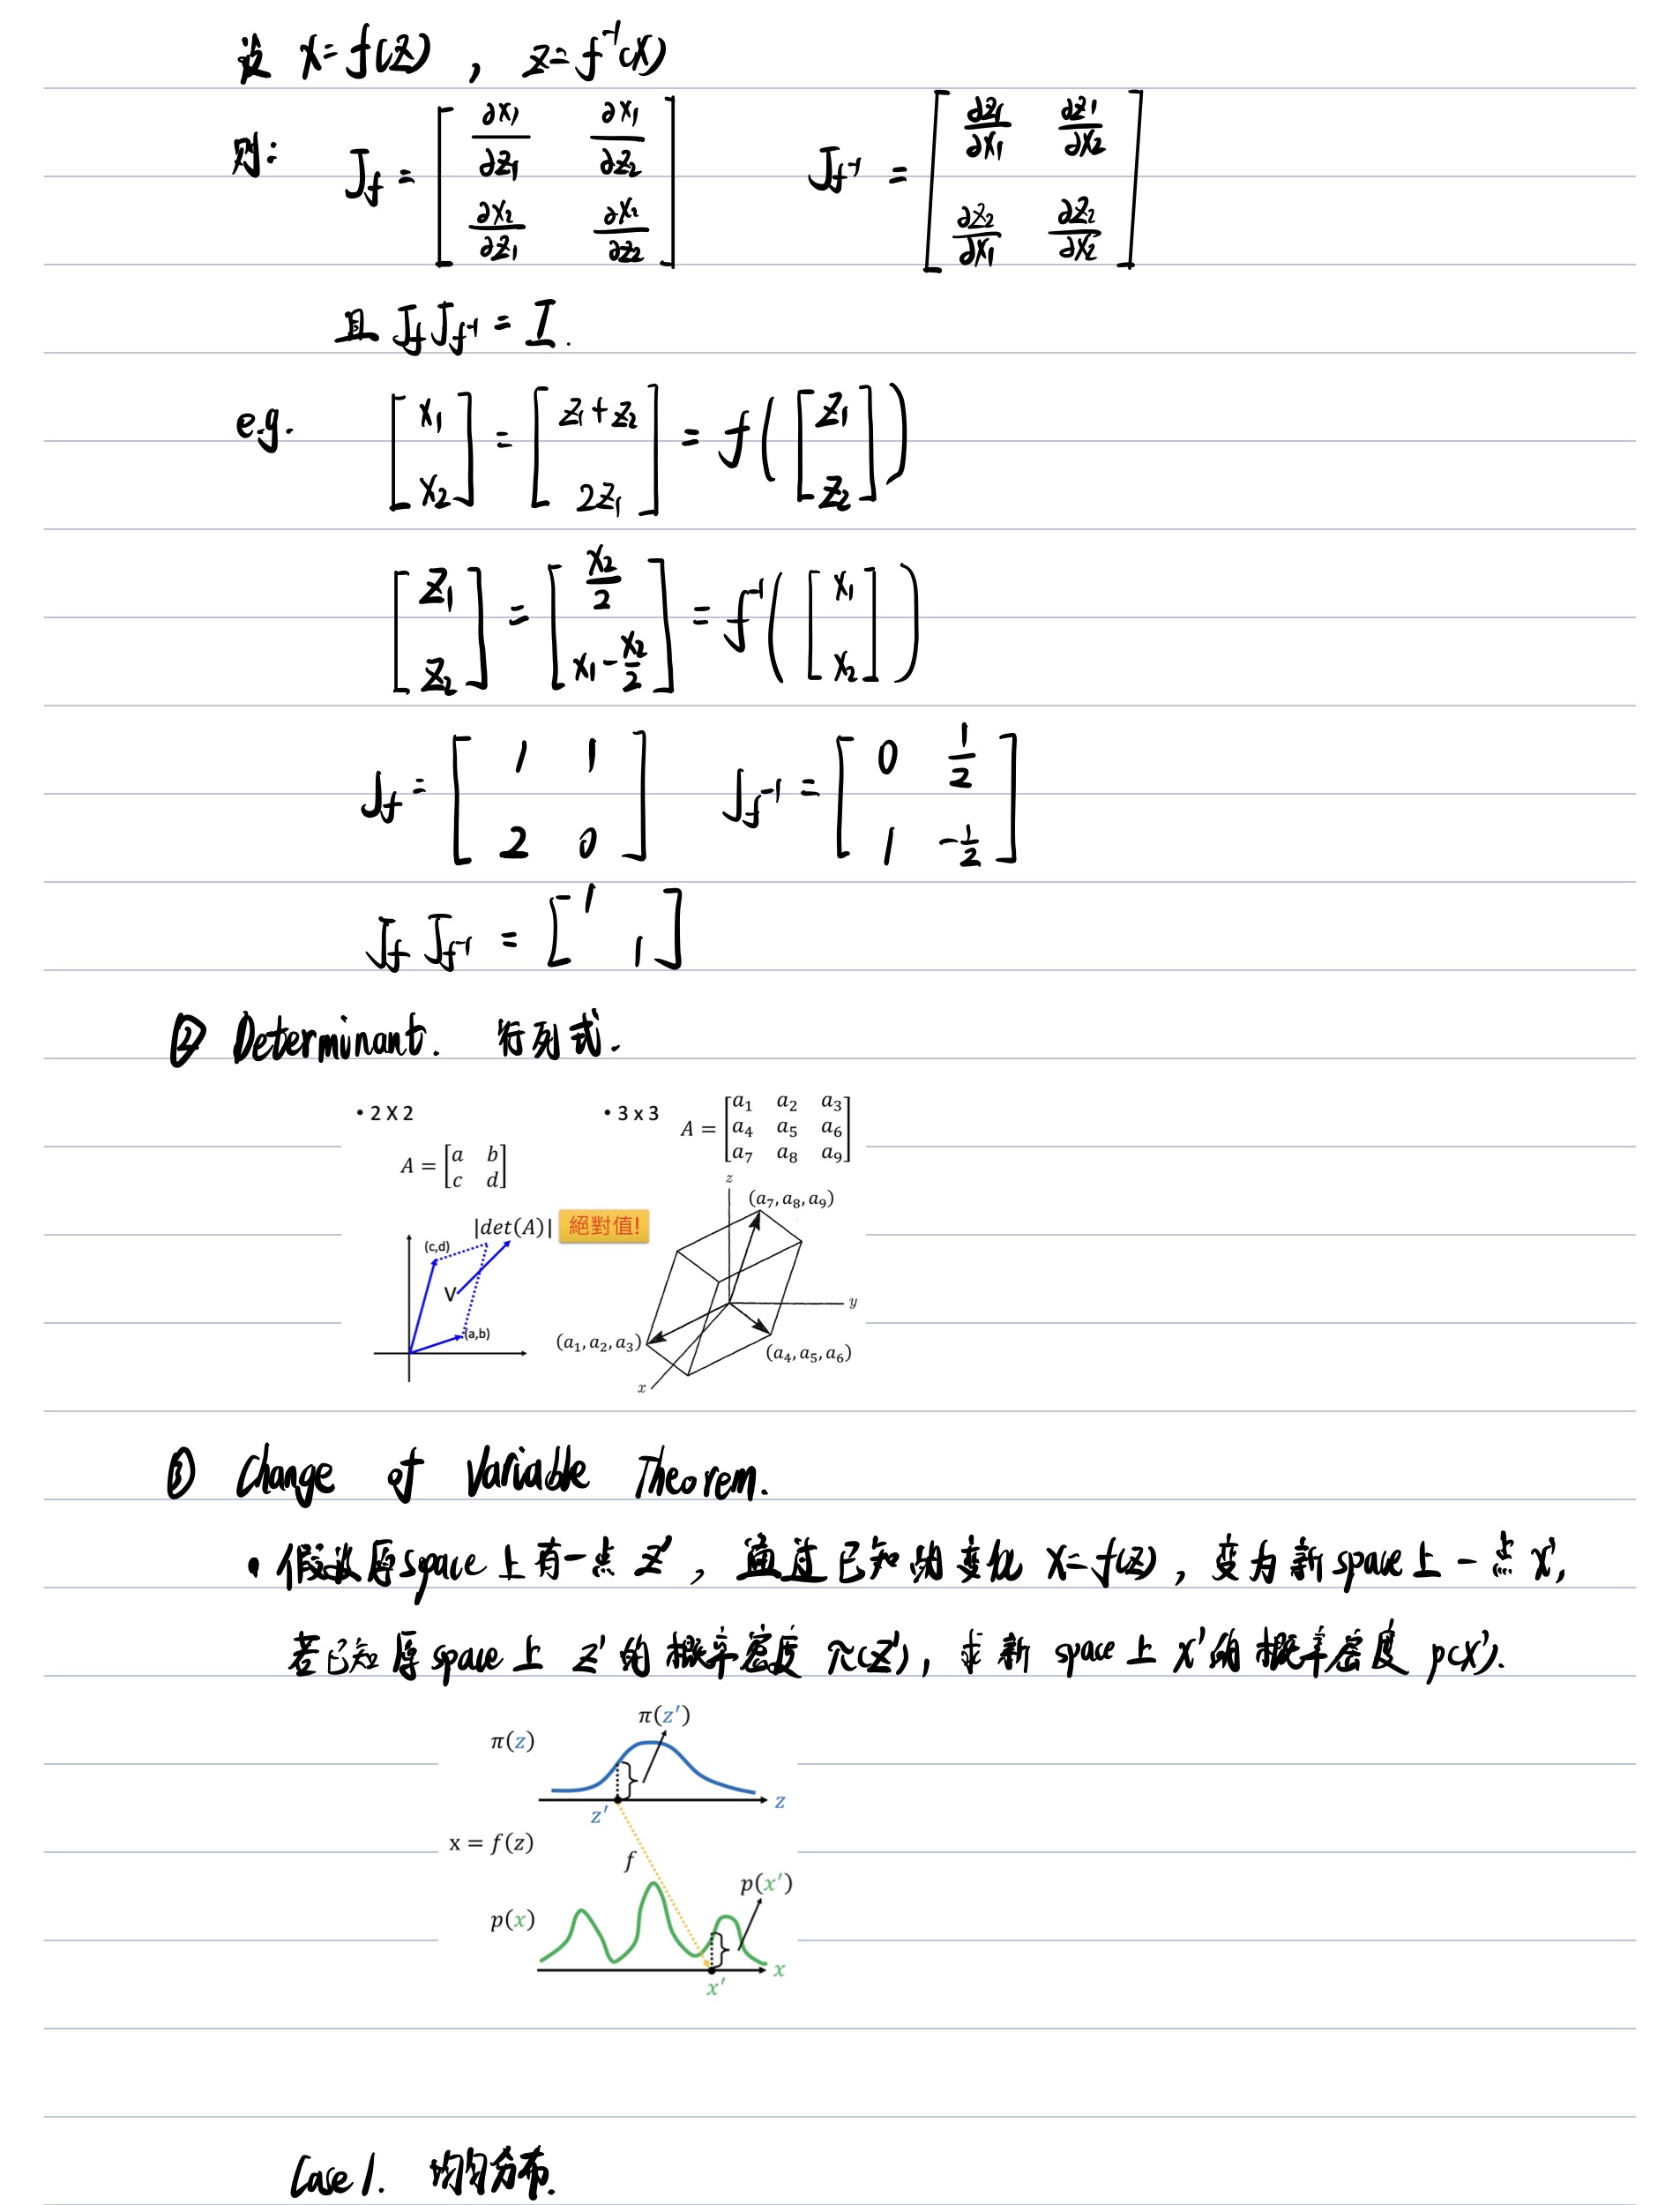 设 x=f(z) , z=f⁻¹(x)
则: J_f = [ ∂x₁/∂z₁ ∂x₁/∂z₂ ; ∂x₂/∂z₁ ∂x₂/∂z₂ ] J_f⁻¹ = [ ∂z₁/∂x₁ ∂z₁/∂x₂ ; ∂z₂/∂x₁ ∂z₂/∂x₂ ]
且 J_f J_f⁻¹ = I.
e.g. [ x₁ ; x₂ ] = [ z₁+z₂ ; 2z₁ ] = f([ z₁ ; z₂ ])
[ z₁ ; z₂ ] = [ x₂/2 ; x₁-x₂/2 ] = f⁻¹([ x₁ ; x₂ ])
J_f = [ 1 1 ; 2 0 ] J_f⁻¹ = [ 0 1/2 ; 1 -1/2 ]
J_f J_f⁻¹ = [ 1 ; 1 ]
② Determinant. 行列式.
• 2 X 2 • 3 x 3
A = [ a b ; c d ] A = [ a₁ a₂ a₃ ; a₄ a₅ a₆ ; a₇ a₈ a₉ ]
z
(a₇, a₈, a₉)
|det(A)| 絕對值!
(c,d)
V
y
(a,b)
(a₁, a₂, a₃)
(a₄, a₅, a₆)
x
③ Change of Variable Theorem.
• 假设原space上有一点 z', 通过已知的变化 x=f(z), 变为新space上一点 x',
若已知原space上 z'的概率密度 π(z'), 求新space上 x'的概率密度 p(x').
π(z')
π(z)
z' z
x = f(z)
f
p(x')
p(x)
x
x'
Case 1. 均匀分布.